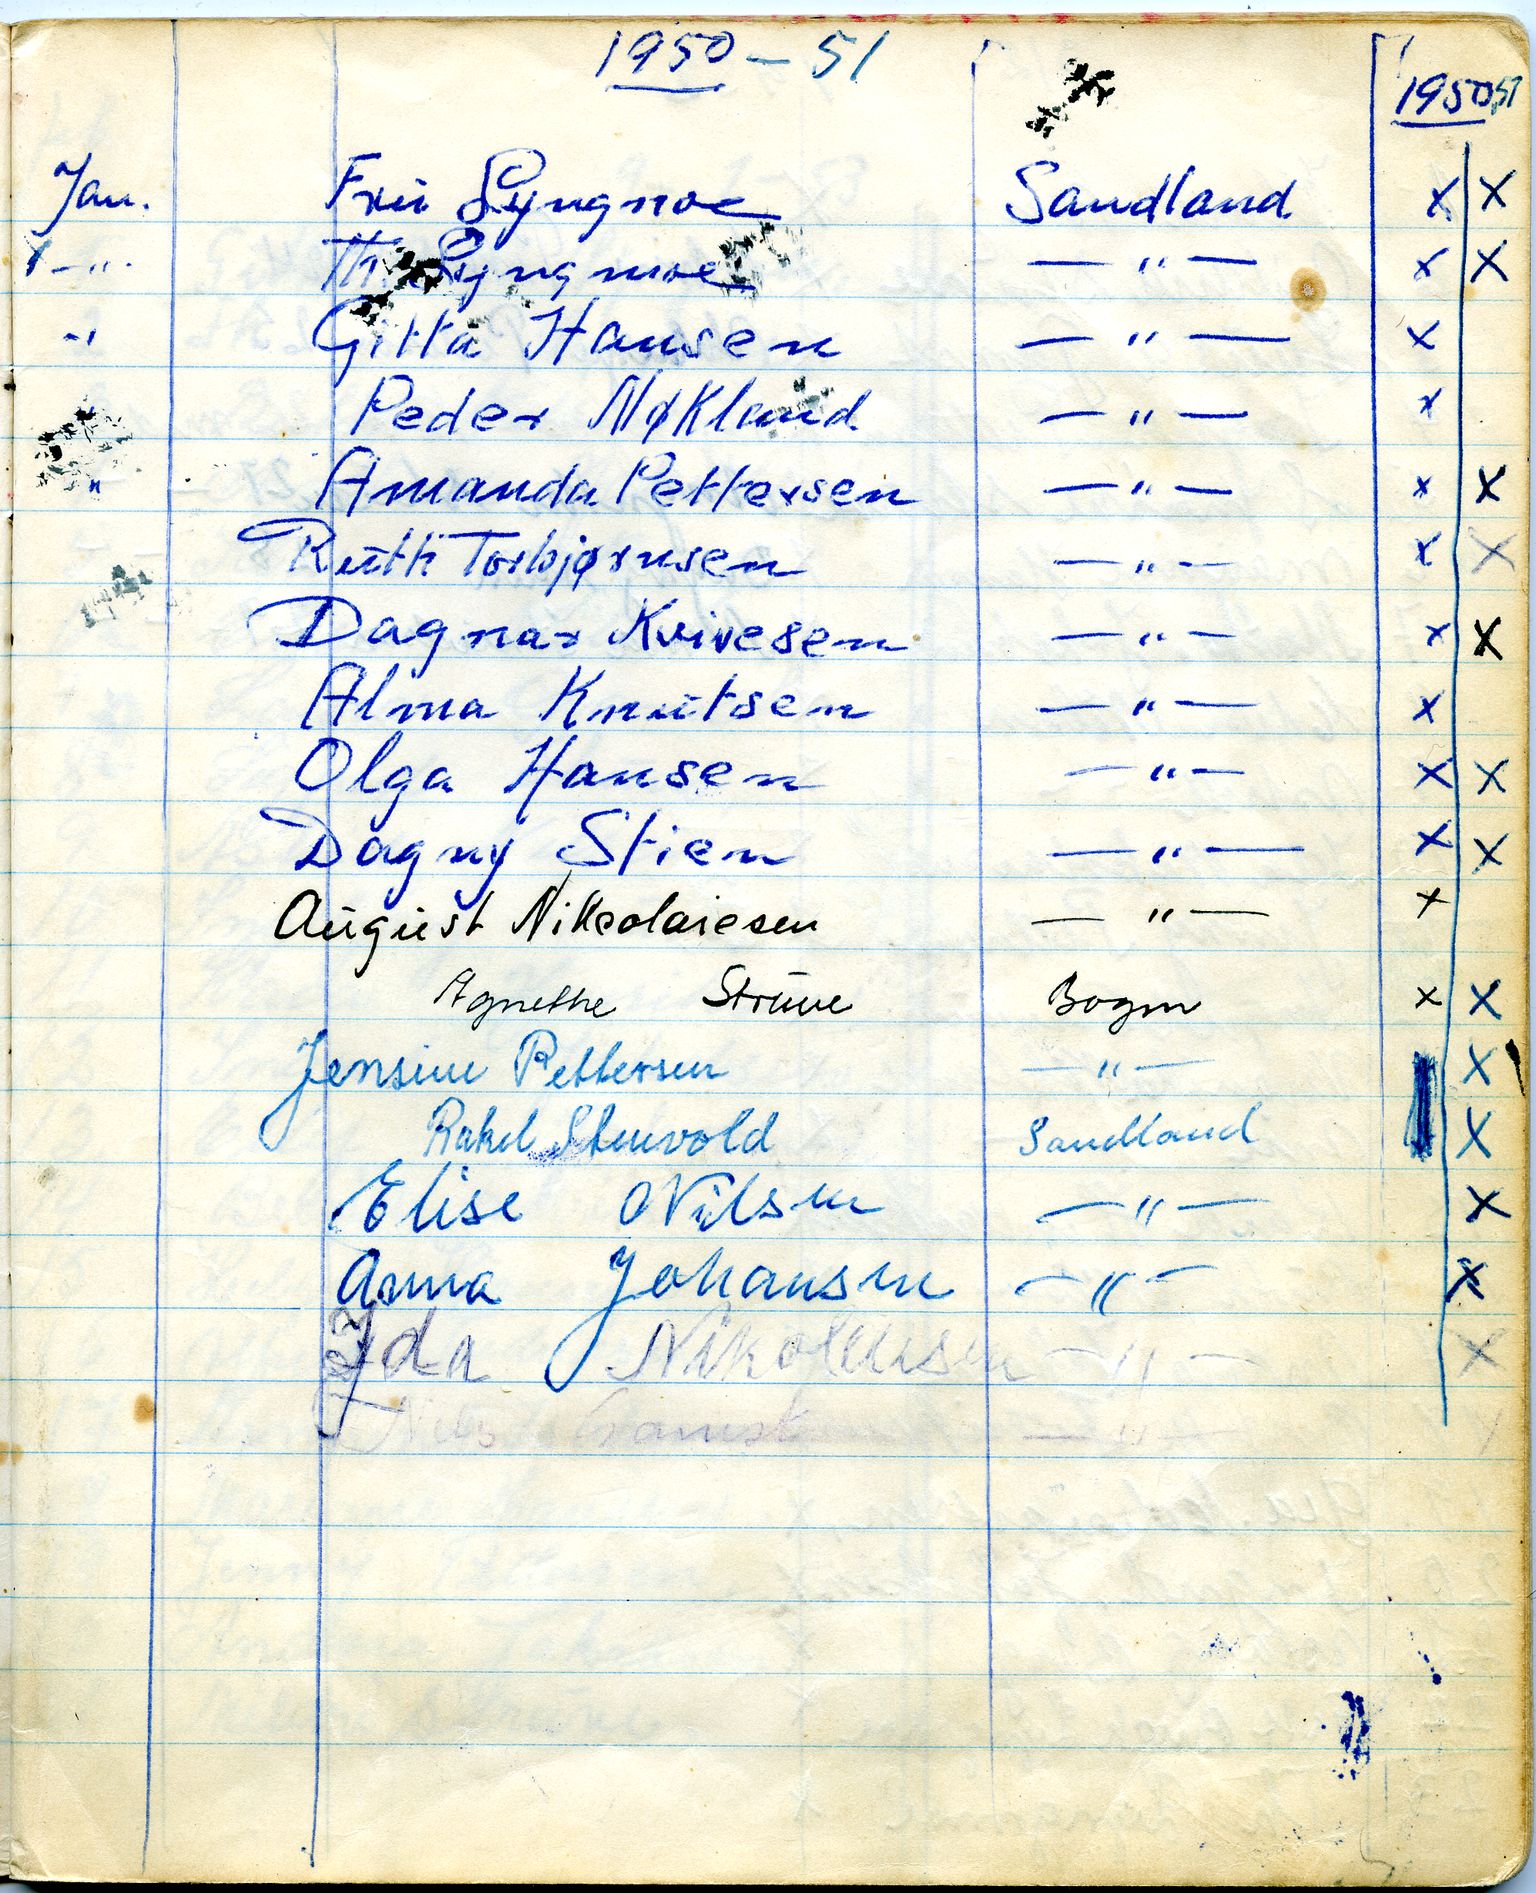 1950 - 51
1950 51
Jan. Fru Lyngmoe Sandland x x
- " - Th. Lyngmoe — " — x x
- " Gitta Hansen — " — x
Peder Nøkland — " — x
" Amanda Pettersen — " — x x
Ruth Torbjørnsen — " — x x
Dagmar Kvivesen — " — x x
Alma Knutsen — " — x
Olga Hansen — " — x x
Dagny Stien — " — x x
August Nikolaiesen — " — x
Agnethe Strüve Bogm x x
Jensine Pettersen — " — x
Rakel Stenvold Sandland x
Elise Nilsen — " — x
Anna Johansen — " — x
Ida Nikolausen — " — x
Nils — " —